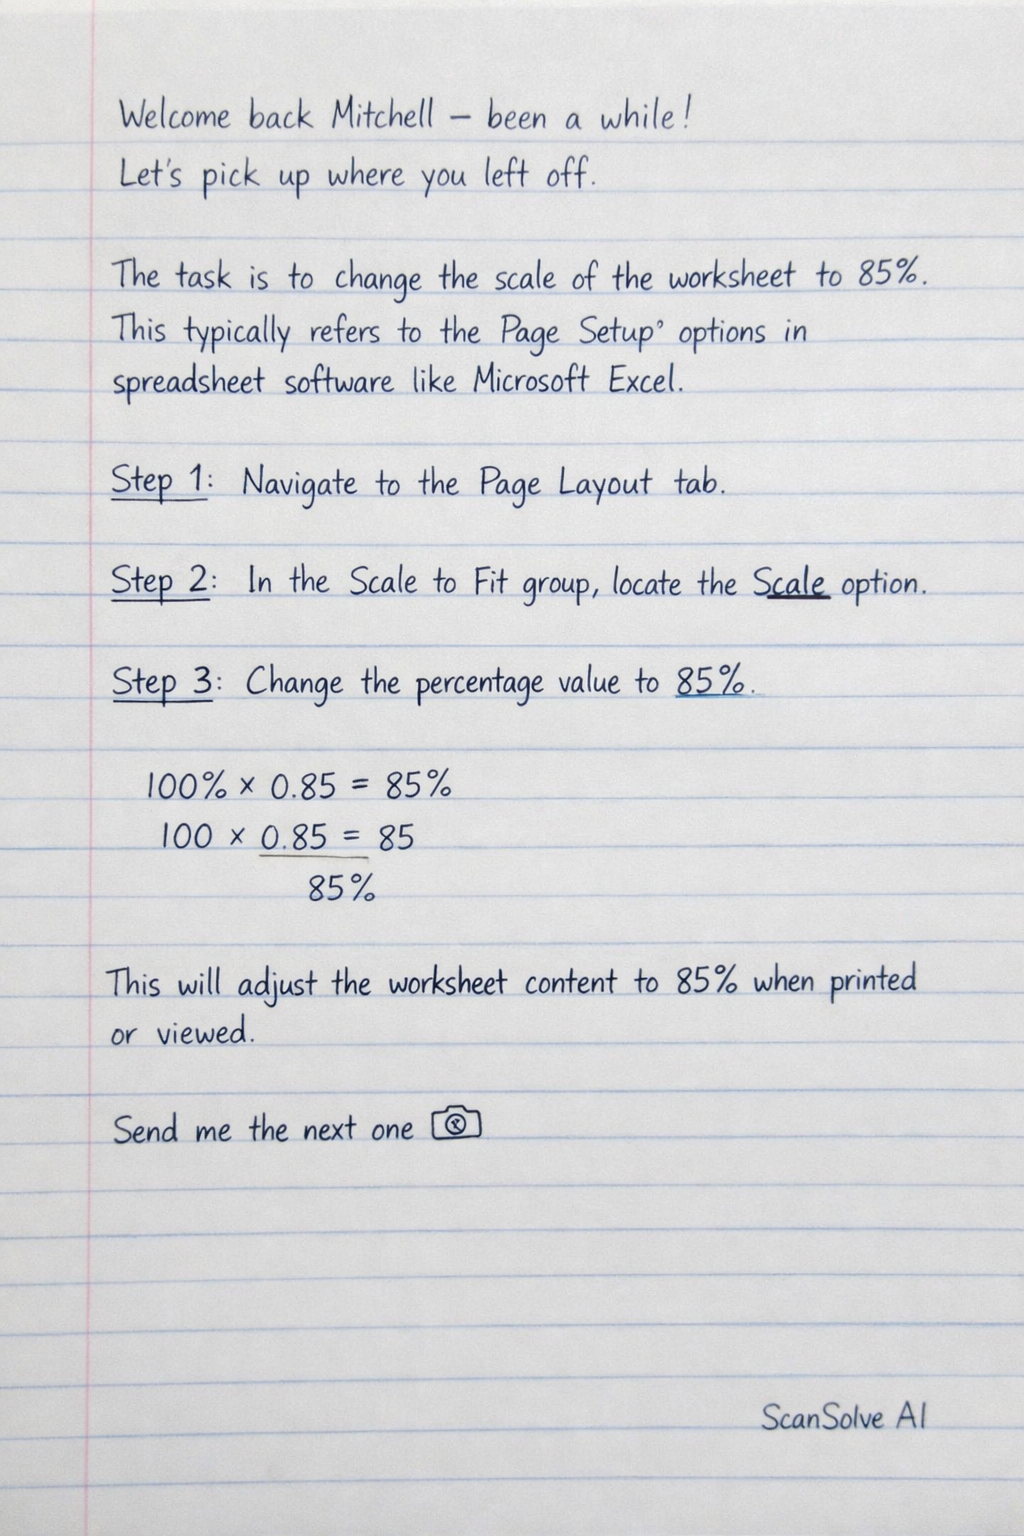 Welcome back Mitchell – been a while!
Let's pick up where you left off.
The task is to change the scale of the worksheet to 85%.
This typically refers to the Page Setup' options in
spreadsheet software like Microsoft Excel.
Step 1: Navigate to the Page Layout tab.
Step 2: In the Scale to Fit group, locate the Scale option.
Step 3: Change the percentage value to 85%.
100% × 0.85 = 85%
100 × 0.85 = 85
85%
This will adjust the worksheet content to 85% when printed
or viewed.
Send me the next one
ScanSolve AI